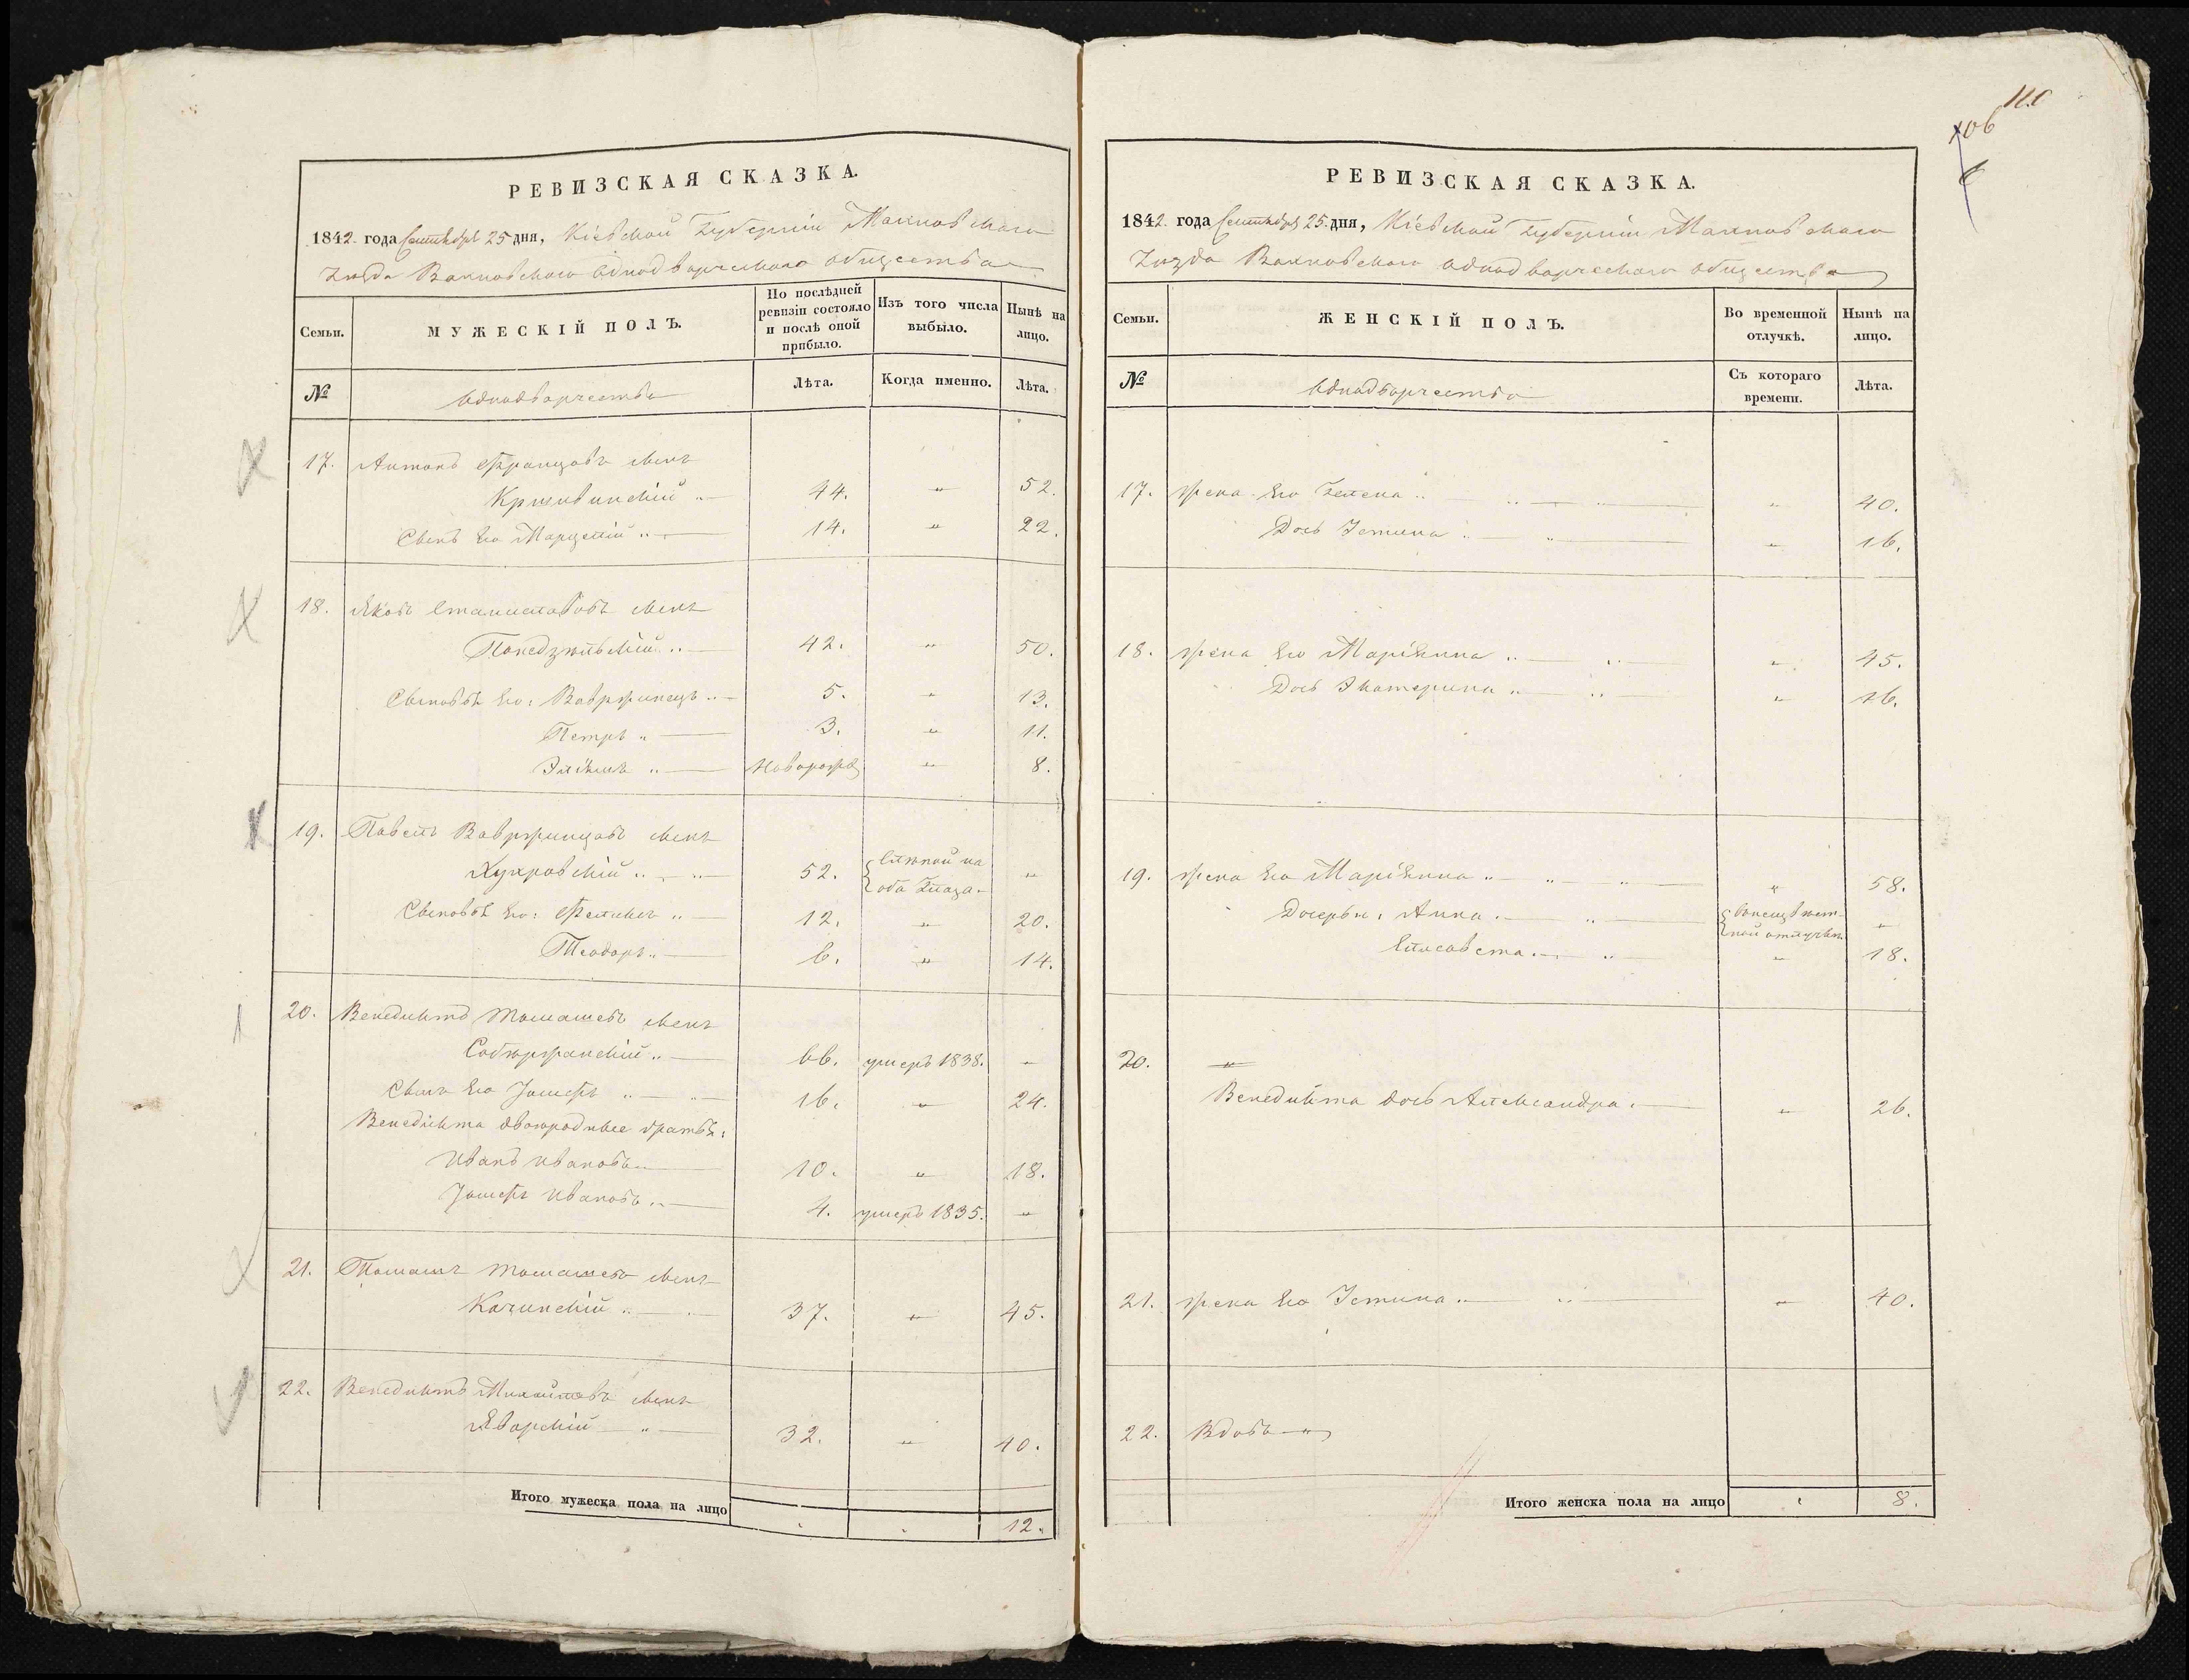 110
106
РЕВИЗСКАЯ СКАЗКА.
1842 года Сентября 25 дня, Кіевской Губерніи Махновскаго
Уѣзда Вахновскаго Однодворческаго общества
Семьи.
МУЖЕСКІЙ ПОЛЪ.
По послѣдней ревизіи состояло и послѣ оной прибыло.
Изъ того числа выбыло.
Нынѣ на лицо.
№
Однодворчества
Лѣта.
Когда именно.
Лѣта.
17. Антонъ Францовъ сынъ
Кршивинскій 44. " 52.
Сынъ Его Марцелій 14. " 22.
18. Яковъ Станиславовъ сынъ
42. " 50.
Сыновья Его: Вавржинецъ 5. " 13.
Петръ " 3. " 11.
Новорож " 8.
19. Павелъ Вавржинцовъ сынъ
52. "
Сыновья Его: Феликсъ 12. " 20.
Теодоръ 6. " 14.
20. Венедиктъ Томашевъ сынъ
66. умеръ 1838. "
Сынъ Его Іосифъ 16. " 24.
Венедикта двоюродные братья:
Иванъ Ивановъ 10. " 18.
Іосифъ Ивановъ 4. умеръ 1835. "
21. Томашъ Томашевъ сынъ
Качинскій 37. " 45.
22. Венедиктъ Михайловъ сынъ
Яворскій " 32. " 40.
Итого мужеска пола на лицо 12.
РЕВИЗСКАЯ СКАЗКА.
1842. года Сентября 25. дня, Кіевской Губерніи Махновскаго
Уѣзда Вахновскаго Однодворческаго общества
Семьи.
ЖЕНСКІЙ ПОЛЪ.
Во временной отлучкѣ.
Нынѣ на лицо.
№
Однодворчества
Съ котораго времени.
Лѣта.
17. жена Его Гелена " 40.
Дочь Істина " 16.
18. жена Его Маріянна " 45.
Дочь Екатерина " 16.
19. жена Его Маріянна " 58.
Дочери: Анна "
Елисавета " 18.
20. "
Венедикта дочь Александра " 26.
21. жена Его Істина " 40.
22. Вдовъ "
Итого женска пола на лицо 8.